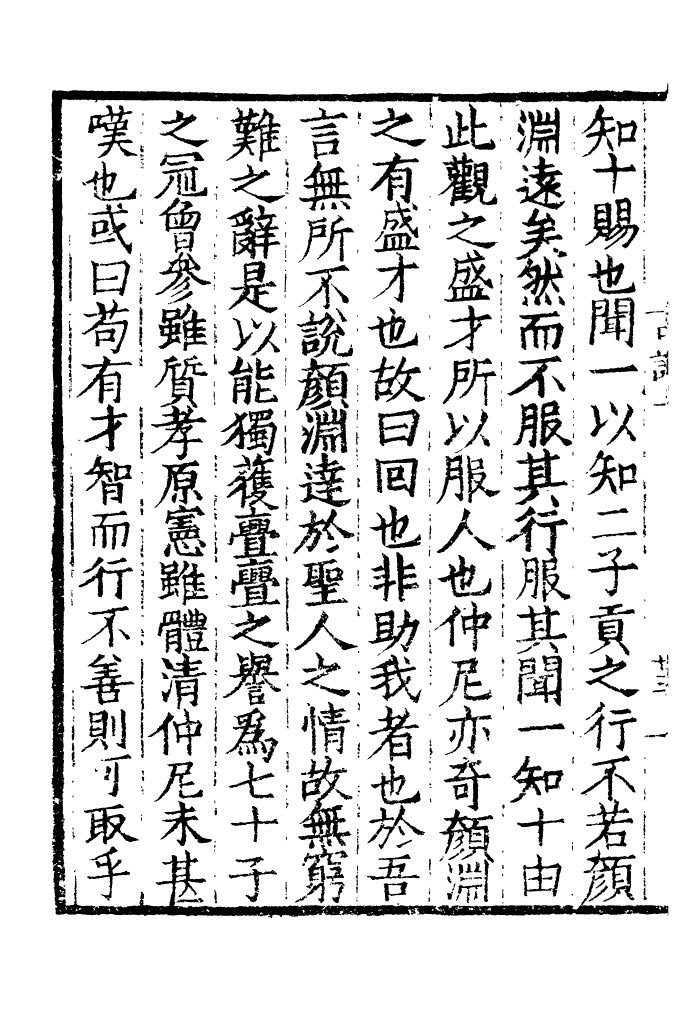 知十賜也聞一以知二子貢之行不若顏
淵遠矣然而不服其行服其聞一知十由
此觀之盛才所以服人也仲尼亦奇顏淵
之有盛才也故曰回也非助我者也於吾
言無所不說顏淵達於聖人之情故無窮
難之辭是以能獨蒦亹亹之譽為七十子
之冠曾參雖質孝原憲雖體清仲尼未甚
嘆也或曰苟有才智而行不善則可取乎